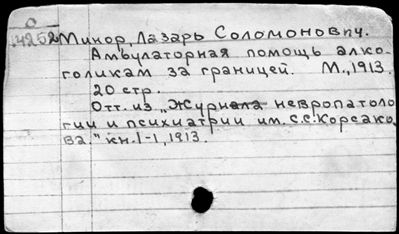 О
4252 Минор, Лазарь Соломонович.
Амбулаторная помощь алко-
голикам за границей. М., 1913.
20 стр.
Отт. из "Журнала невропатоло
гии и психиатрии им. С.С. Корсако
ва." кн. 1-1, 1913.